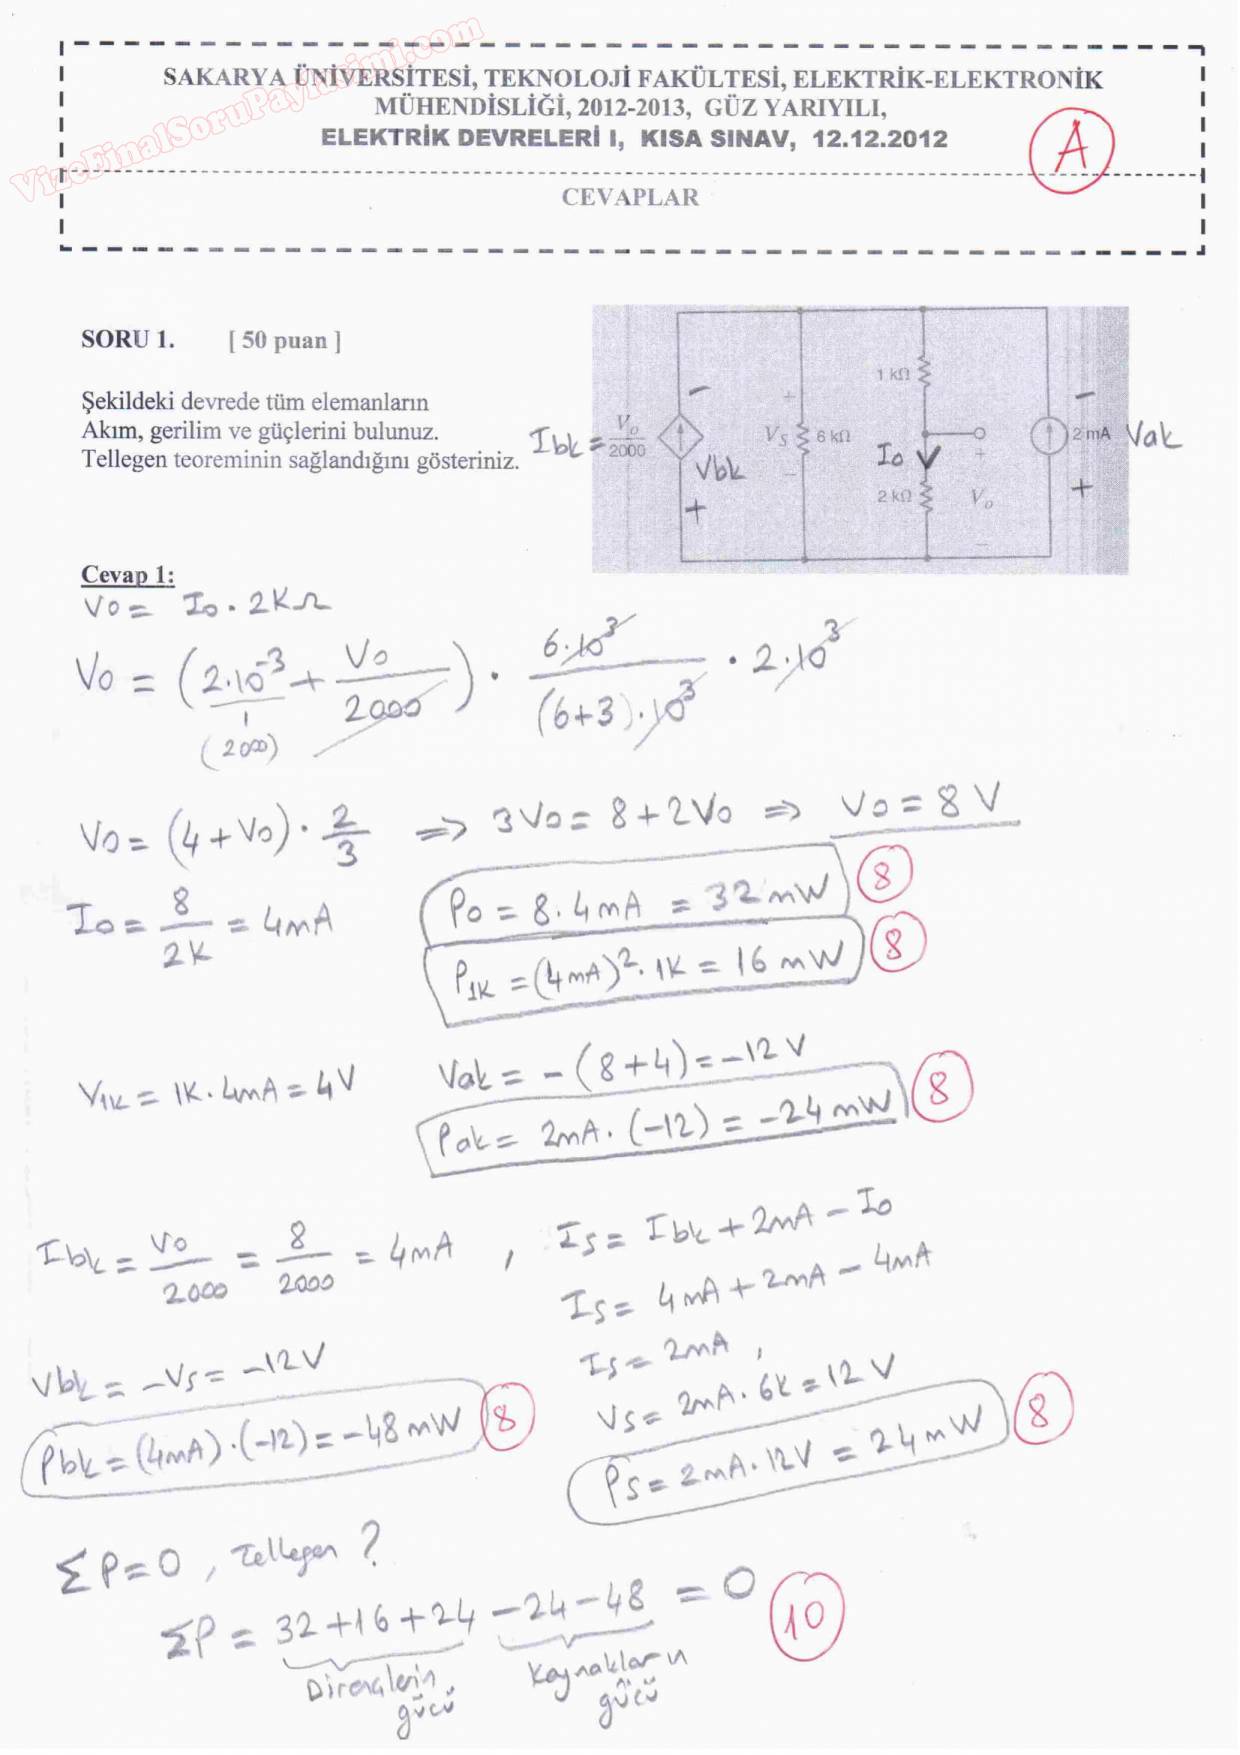 VizeFinalSoruPaylasimi.com
SAKARYA ÜNİVERSİTESİ, TEKNOLOJİ FAKÜLTESİ, ELEKTRİK-ELEKTRONİK
MÜHENDİSLİĞİ, 2012-2013, GÜZ YARIYILI,
ELEKTRİK DEVRELERİ I, KISA SINAV, 12.12.2012
A
CEVAPLAR
SORU 1. [ 50 puan ]
Şekildeki devrede tüm elemanların
Akım, gerilim ve güçlerini bulunuz.
Tellegen teoreminin sağlandığını gösteriniz.
Ibk = Vo/2000
-
Vbk
+
+
VS 6 kΩ
-
1 kΩ
Io
2 kΩ
+
Vo
-
-
2 mA Vak
+
Cevap 1:
Vo = Io . 2KΩ
Vo = (2.10^-3 + Vo/2000) . 6.10^3/(6+3).10^3 . 2.10^3
1
(2000)
Vo = (4+Vo) . 2/3 => 3Vo = 8+2Vo => Vo = 8 V
Io = 8/2K = 4mA
Po = 8.4mA = 32 mW 8
P1K = (4mA)^2 . 1K = 16 mW 8
V1K = 1K.4mA = 4V
Vak = -(8+4) = -12 V
Pak = 2mA.(-12) = -24 mW 8
Ibk = Vo/2000 = 8/2000 = 4mA ,
Is = Ibk + 2mA - Io
Is = 4mA + 2mA - 4mA
Is = 2mA ,
Vs = 2mA.6K = 12 V
Ps = 2mA.12V = 24 mW 8
Vbk = -Vs = -12V
Pbk = (4mA).(-12) = -48 mW 8
ΣP = 0 , Tellegen ?
ΣP = 32+16+24 -24-48 = 0 10
Dirençlerin gücü
Kaynakların gücü